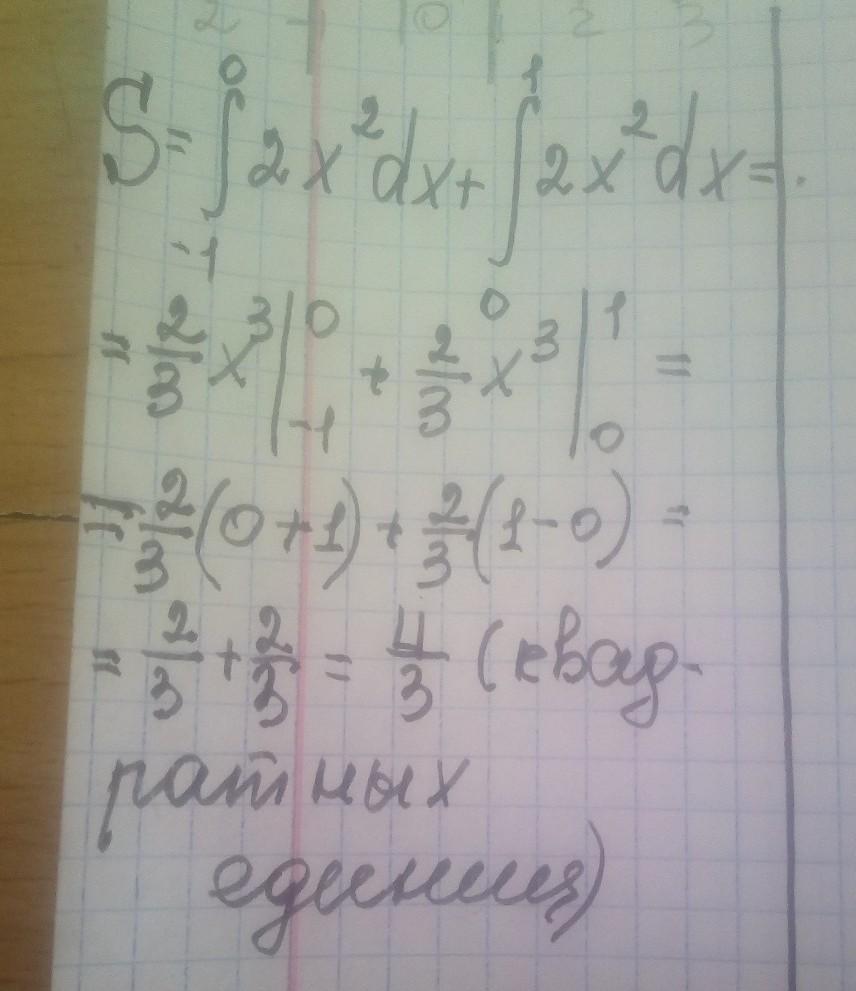 2 1 0 1 2 3
S = ∫₋₁⁰ 2x²dx + ∫₀¹ 2x²dx =
= 2/3 x³ |₋₁⁰ + 2/3 x³ |₀¹ =
= 2/3 (0+1) + 2/3 (1-0) =
= 2/3 + 2/3 = 4/3 (квад-
ратных
единиц)